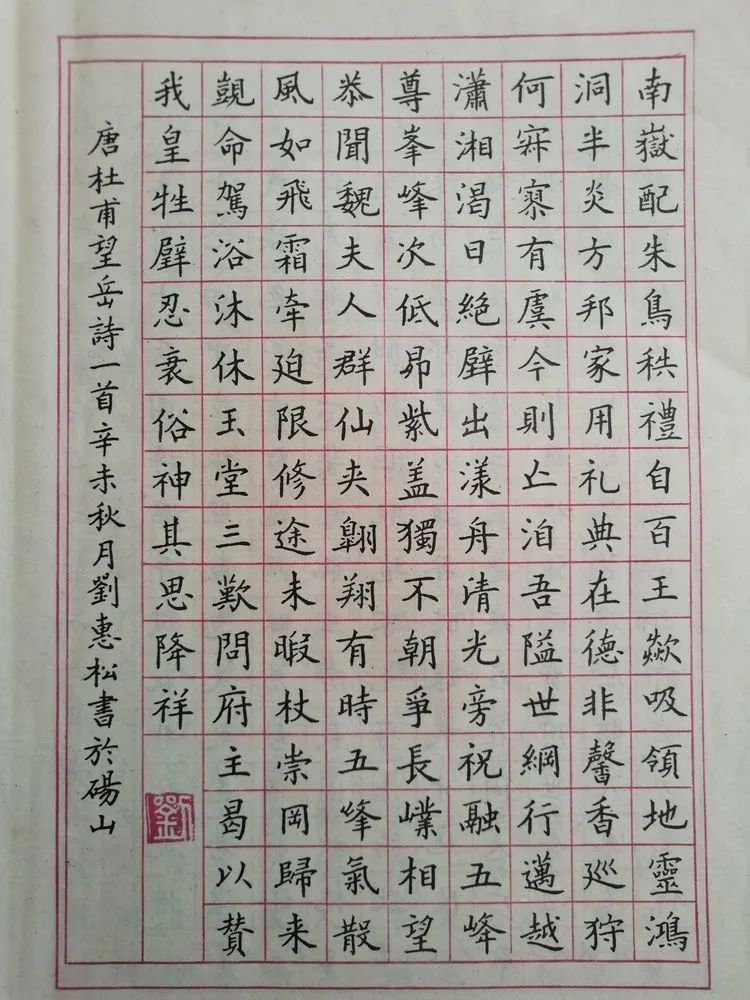 南嶽配朱鳥秩禮自百王歘吸領地靈鴻
洞半炎方邦家用礼典在德非馨香巡狩
何寂寥有虞今則亾洎吾隘世綱行邁越
瀟湘渴日絕壁出漾舟清光旁祝融五峰
尊峯峰次低昂紫盖獨不朝爭長嶫相望
恭聞魏夫人群仙夾翱翔有時五峰氣散
風如飛霜牽迫限修途未暇杖崇岡歸来
覬命駕浴沐休玉堂三歎問府主曷以賛
我皇牲璧忍衰俗神其思降祥
劉
唐杜甫望岳詩一首辛未秋月劉惠松書於碭山